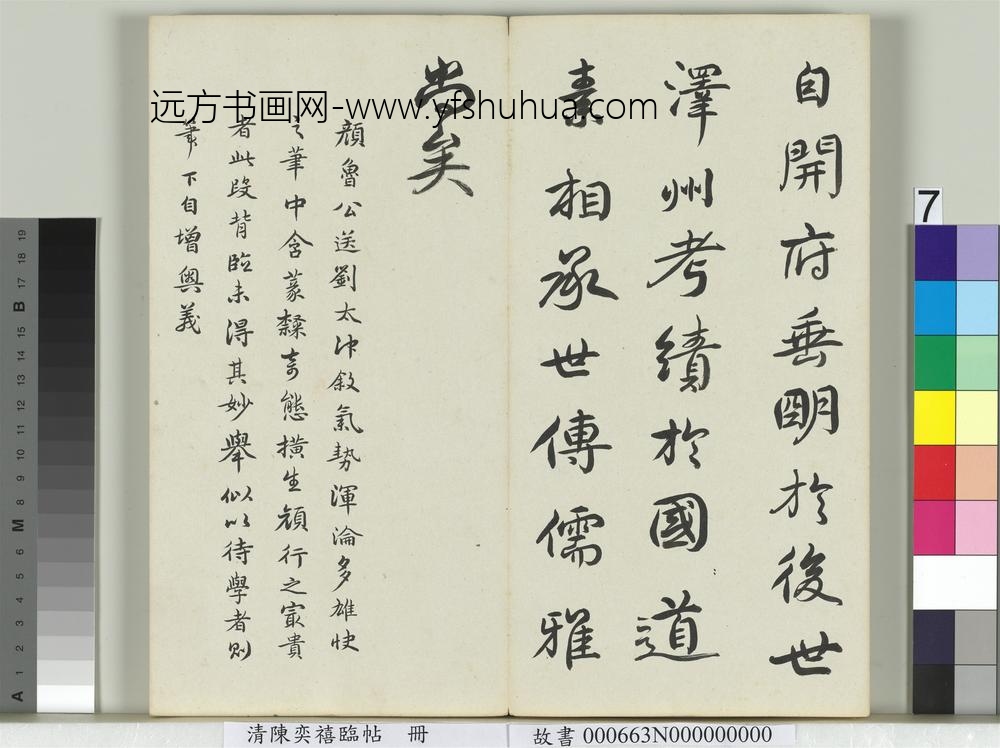 自開府垂明於後世
澤州考績於國道
素相承世傳儒雅
尚矣
顏魯公送劉太冲敘氣勢渾淪多雄快
之筆中含篆隸奇態橫生顏行之宲貴
者此段背臨未得其妙舉似以待學者則
筆下自增奧義
远方书画网-www.yfshuhua.com
7
A 1 2 3 4 5 6 M 8 9 10 11 12 13 14 15 B 17 18 19
清陳奕禧臨帖 冊
故書 000663N000000000